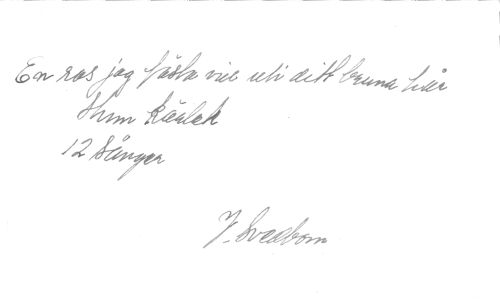 En ros jag fästa vill uti ditt bruna hår
Stum kärlek
12 Sånger
V. Svedbom